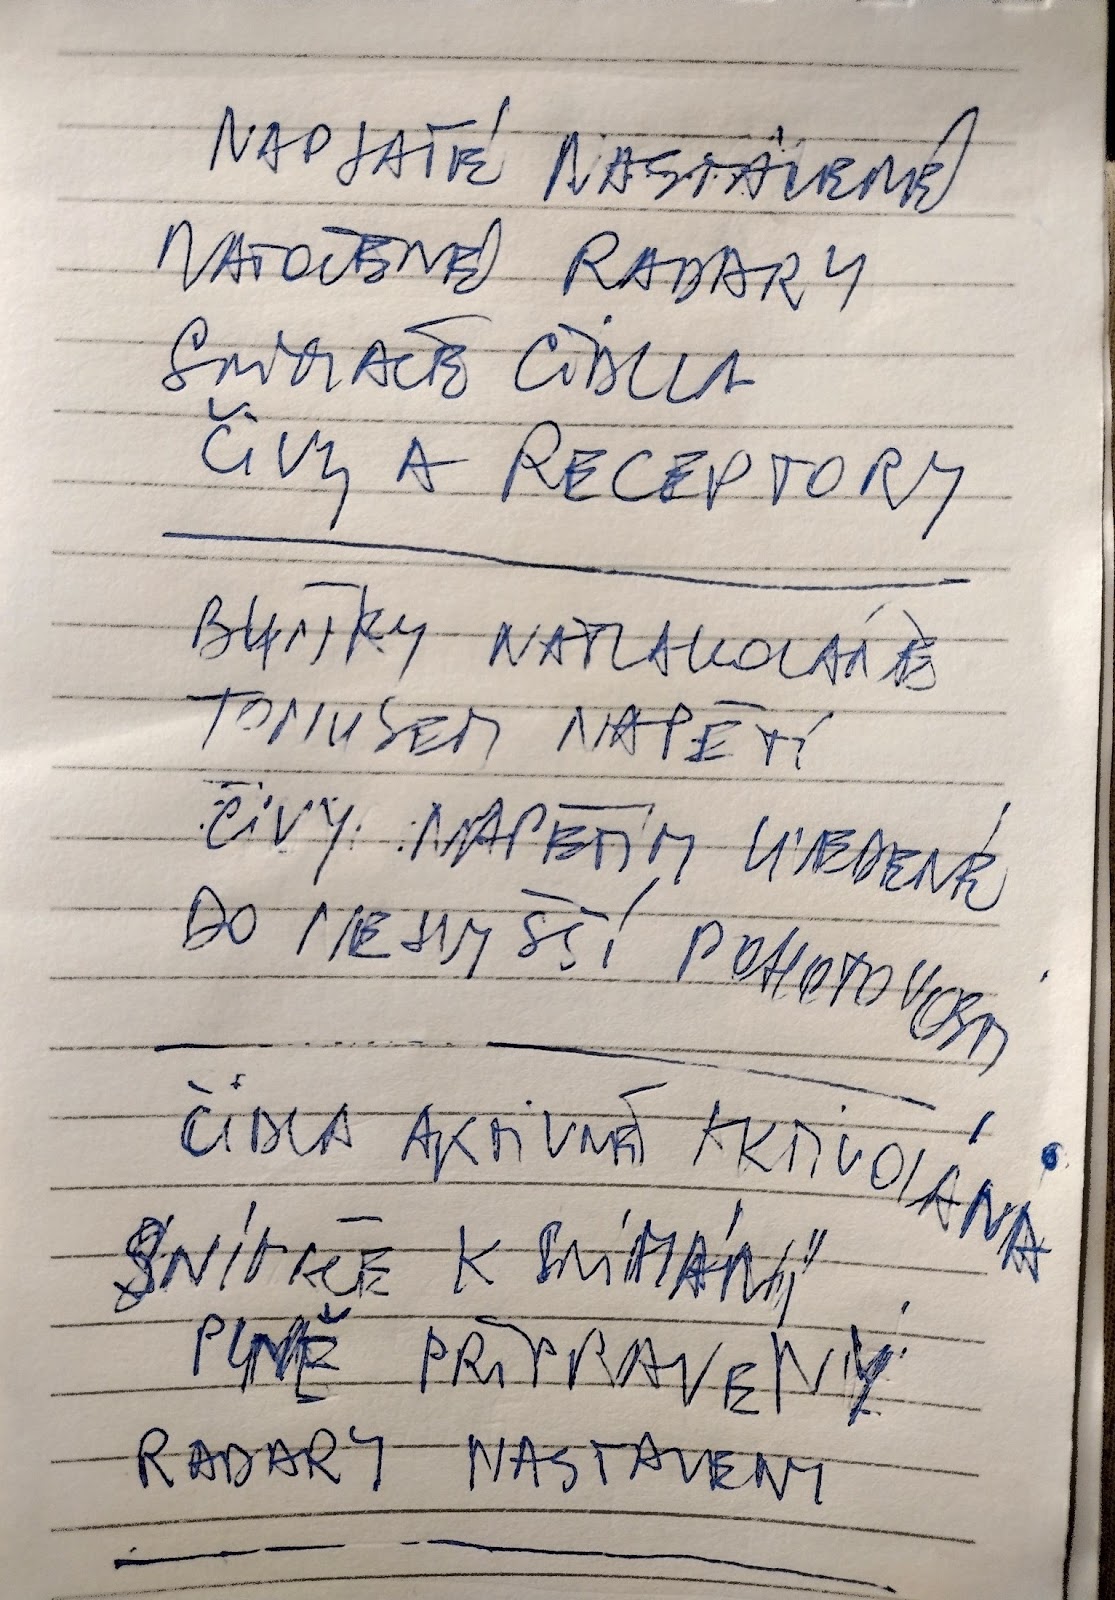 NAPJATÉ NASTAVENÉ
NATOČENÉ RADARY
SNÍMAČE ČIDLA
ČIVY A RECEPTORY
BUŇKY NATLAKOVANÉ
TONUSEM NAPĚTÍ
ČIVY NAPĚTÍM UVEDENÉ
DO NEJVYŠŠÍ POHOTOVOSTI
ČIDLA AKTIVNĚ AKTIVOVÁNA
SNÍMAČE K SNÍMÁNÍ
PLNĚ PŘIPRAVENY
RADARY NASTAVENY